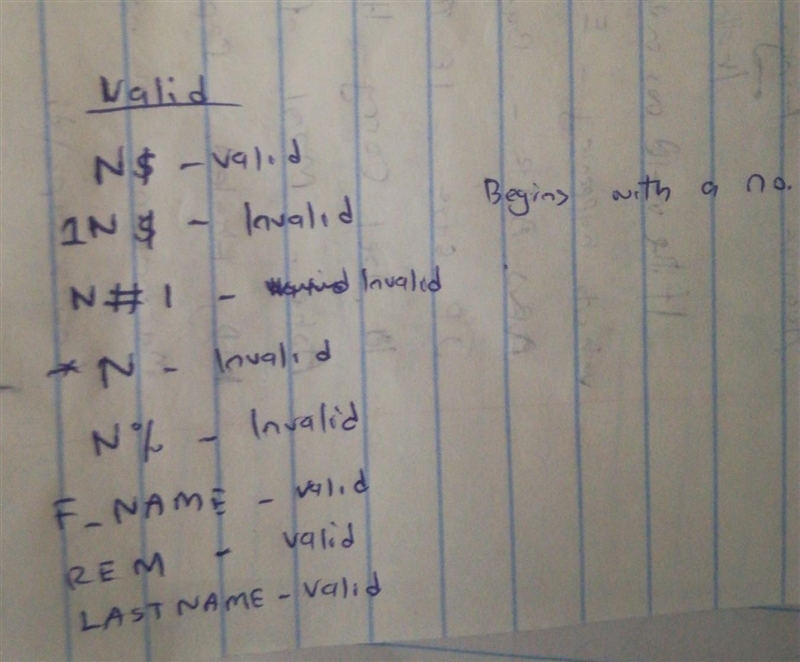 Valid
N$ - valid
1N$ - Invalid Begins with a no.
N#1 - Invalid
*N - Invalid
N% - Invalid
F_NAME - valid
REM - valid
LASTNAME - valid